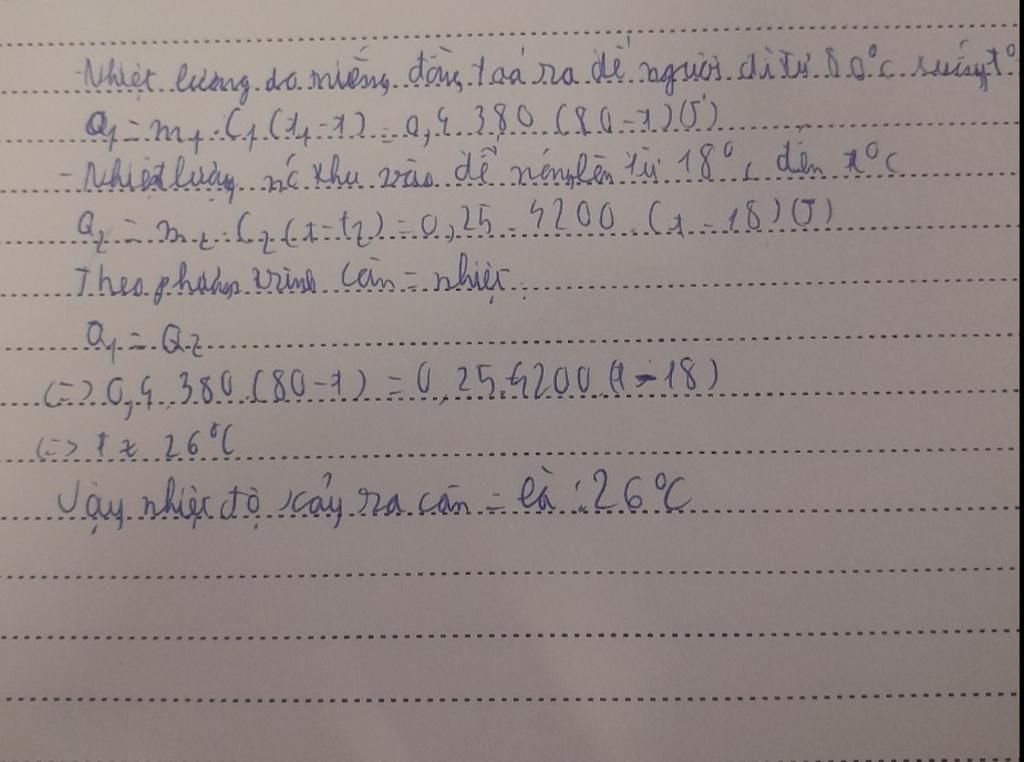 - Nhiệt lượng do miếng đồng toả ra để nguội đi từ 80°C xuống t°
Q1 = m1.C1.(t1-t) = 0,4.380.(80-t)(J)
- Nhiệt lượng nc thu vào để nóng lên từ 18°C đến t°C
Q2 = m2.C2.(t-t2) = 0,25.4200.(t-18)(J)
Theo phương trình cân = nhiệt:
Q1 = Q2
(=) 0,4.380.(80-t) = 0,25.4200.(t-18)
(=) t ≈ 26°C
Vậy nhiệt độ xảy ra cân = là : 26°C